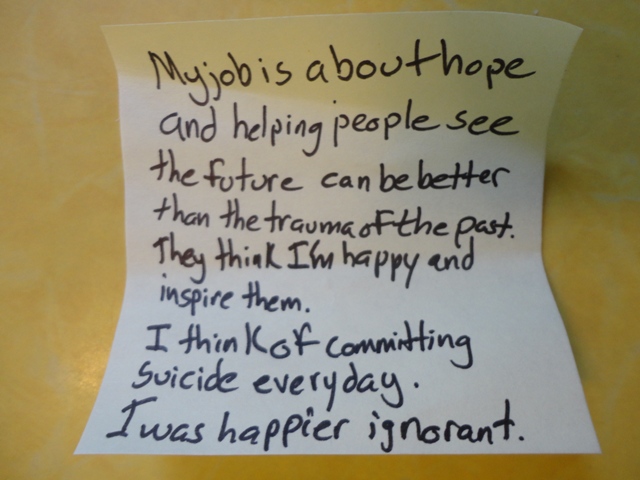 My job is about hope
and helping people see
the future can be better
than the trauma of the past.
They think I'm happy and
inspire them.
I think of committing
suicide everyday.
I was happier ignorant.